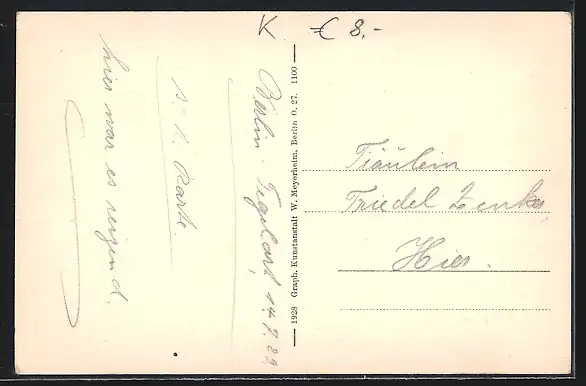 K € 8.-
Berlin - Tegelort, 14.7.29
s. l. Karte
hier war es reizend.
1928 Graph. Kunstanstalt W. Meyerheim, Berlin O. 27. 1100
Fräulein
Friedel Zenker
Hier.